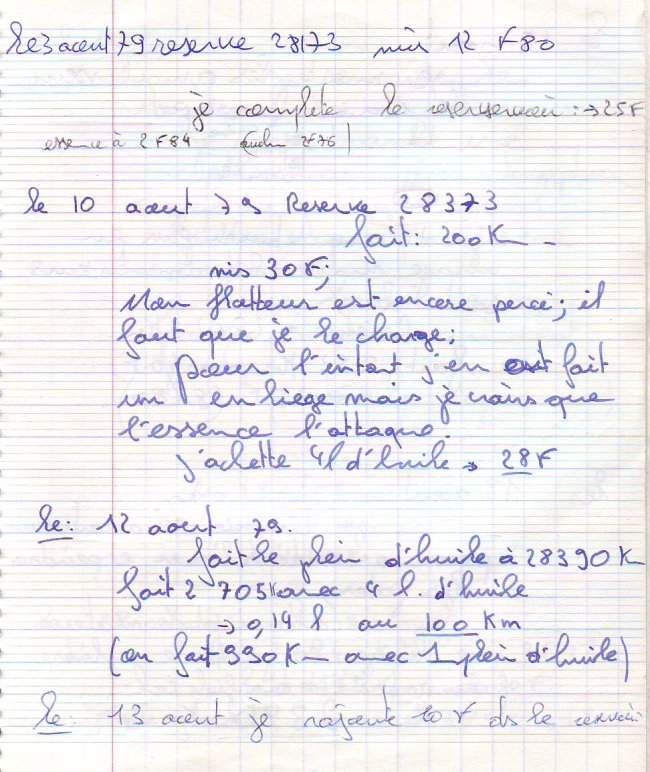 le 3 aout 79 reserve 28173 mis 12 F80
je complete le reserservoir : → 25F
essence à 2F84 (Leader 2F76)
le 10 aout 79 Reserve 28373
fait : 200K -
mis 30F;
Mon flotteur est encore percé; il
faut que je le change;
pour l'intant j'en fait
un en liege mais je crains que
l'essence l'attaque.
j'achette 4l d'huile → 28F
le : 12 aout 79.
fait le plein d'huile à 28390 K
fait 2 705K avec 4 l. d'huile
→ 0,14 l au 100 Km
(on fait 990K — avec 1 plein d'huile)
le : 13 aout je rajoute 10 F ds le